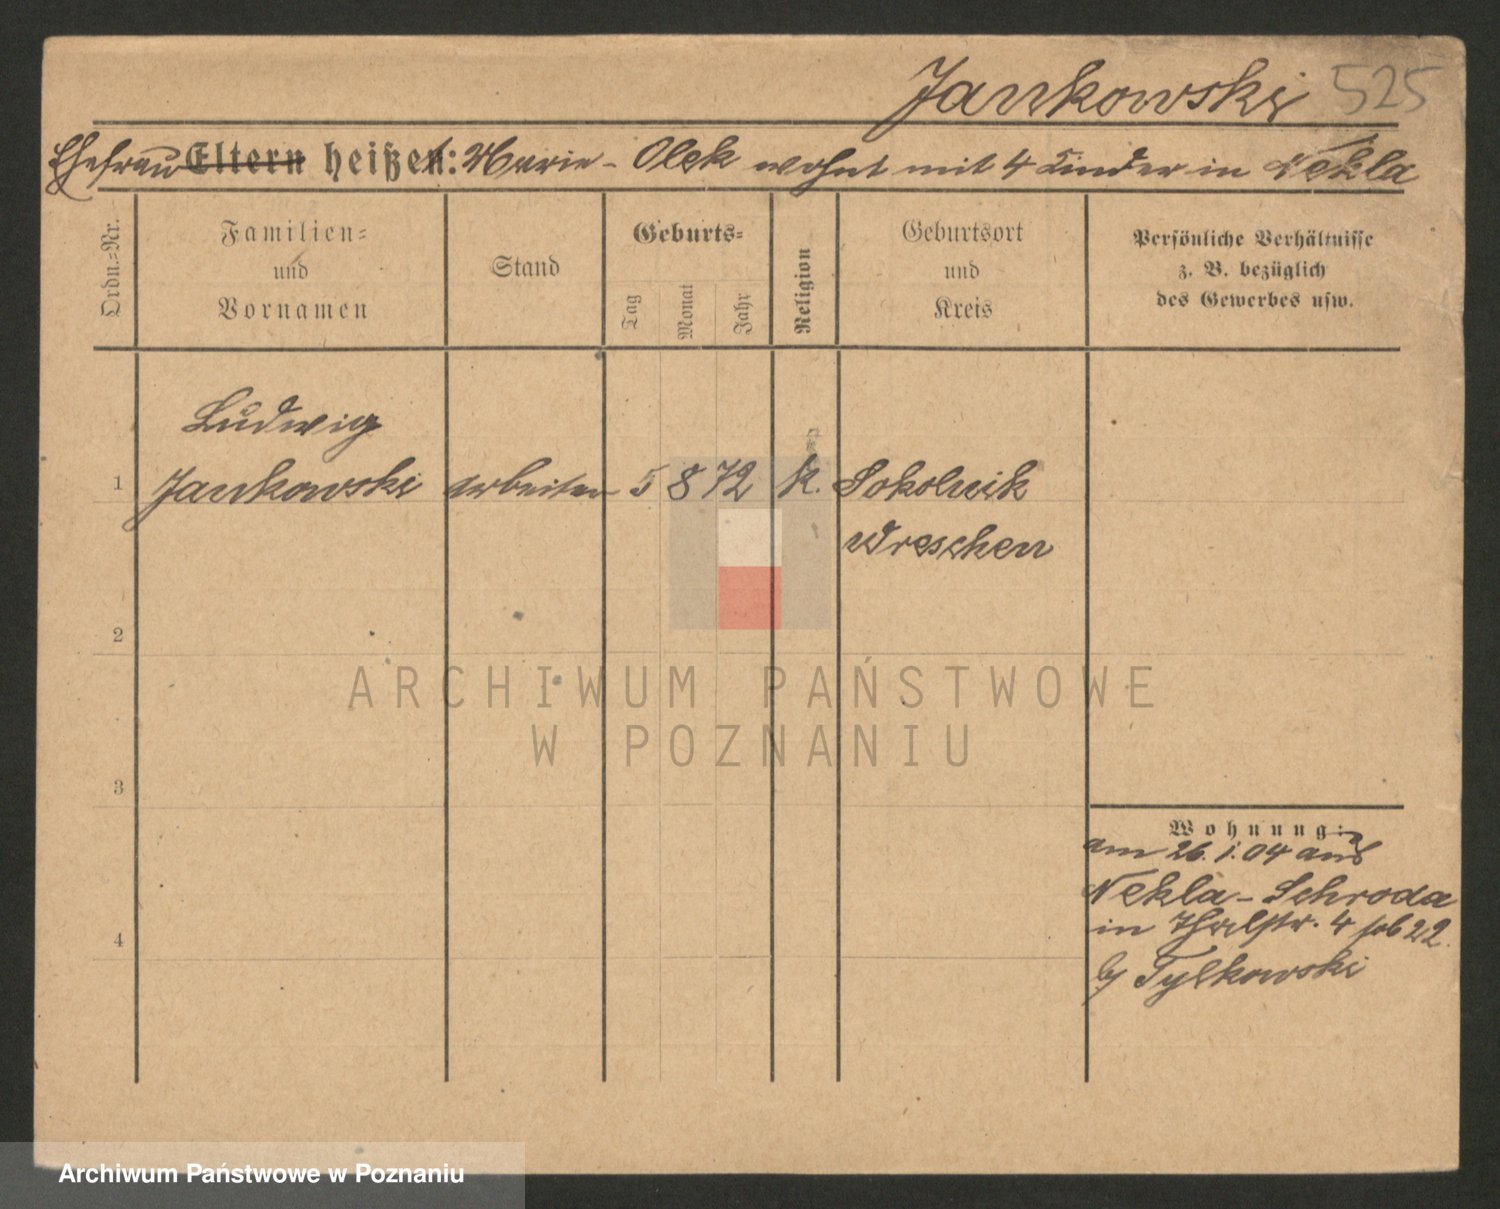 Jankowski 525
Ehefrau Eltern heißen: Marie - Olek wohnt mit 4 Kinder in Nekla
Ordn.=Nr.
Familien=
und
Vornamen
Stand
Geburts=
Tag
Monat
Jahr
Religion
Geburtsort
und
Kreis
Persönliche Verhältnisse
z. B. bezüglich
des Gewerbes usw.
Ludwig
1 Jankowski Arbeiter 5 8 72 k. Sokolnik
Wreschen
2
ARCHIWUM PAŃSTWOWE
W POZNANIU
3
Wohnung:
am 26.1.04 aus
Nekla - Schroda
in Thalstr. 4 22.
b/ Tylkowski
4
Archiwum Państwowe w Poznaniu